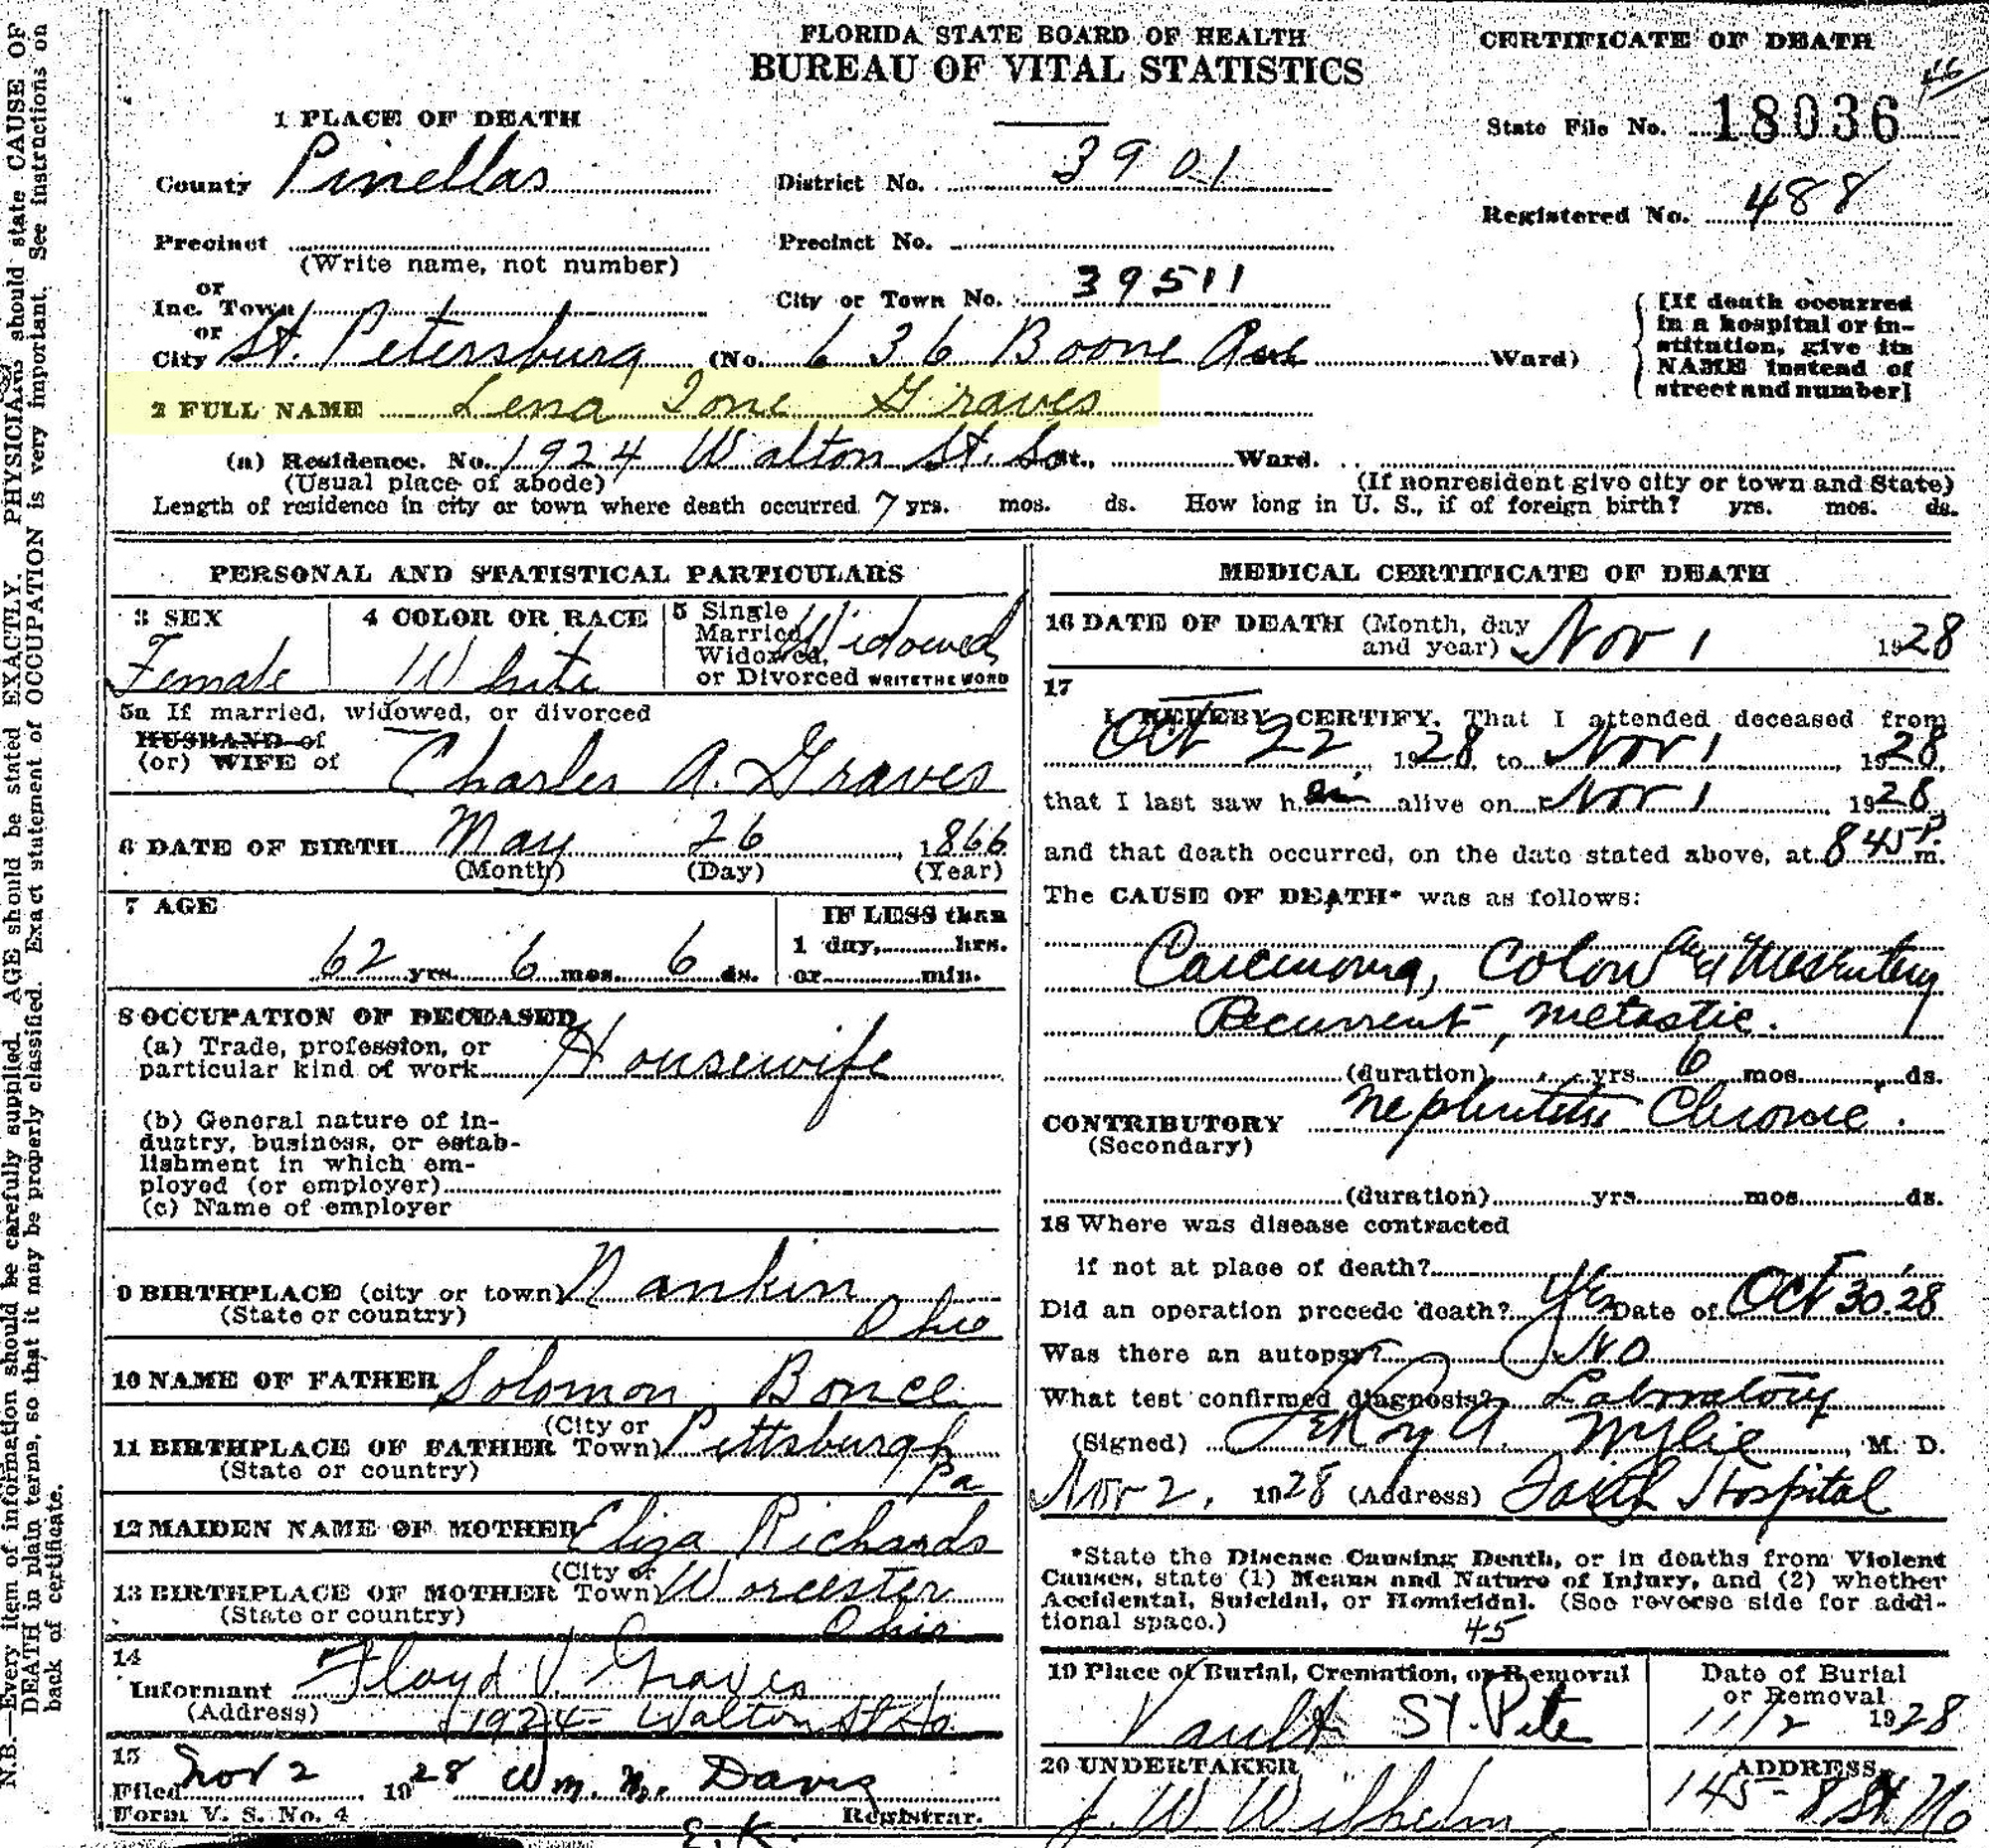 FLORIDA STATE BOARD OF HEALTH
BUREAU OF VITAL STATISTICS
CERTIFICATE OF DEATH
46
State File No. 18036
1 PLACE OF DEATH
County Pinellas
District No. 3901
Registered No. 488
Precinct
(Write name, not number)
Precinct No.
or
Inc. Town
City or Town No. 39511
or
City St. Petersburg (No. 636 Boone Ave Ward)
[If death occurred
in a hospital or in-
stitution, give its
NAME instead of
street and number]
2 FULL NAME Lena Ione Graves
(a) Residence. No. 1924 Walton St. So. St., Ward.
(Usual place of abode)
(If nonresident give city or town and State)
Length of residence in city or town where death occurred 7 yrs. mos. ds. How long in U. S., if of foreign birth? yrs. mos. ds.
PERSONAL AND STATISTICAL PARTICULARS
3 SEX
Female
4 COLOR OR RACE
White
5 Single
Married
Widowed,
or Divorced WRITE THE WORD
Widowed
5a If married, widowed, or divorced
HUSBAND of
(or) WIFE of Charles A. Graves
6 DATE OF BIRTH May 26, 1866
(Month) (Day) (Year)
7 AGE
62 yrs. 6 mos. 6 ds.
IF LESS than
1 day, hrs.
or min.
8 OCCUPATION OF DECEASED
(a) Trade, profession, or
particular kind of work Housewife
(b) General nature of in-
dustry, business, or estab-
lishment in which em-
ployed (or employer)
(c) Name of employer
9 BIRTHPLACE (city or town) Nankin
(State or country) Ohio
10 NAME OF FATHER Solomon Bonce
11 BIRTHPLACE OF FATHER (City or Town) Pittsburgh
(State or country) Pa
12 MAIDEN NAME OF MOTHER Eliza Richards
13 BIRTHPLACE OF MOTHER (City or Town) Worcester
(State or country) Ohio
14
Informant Floyd V. Graves
(Address) 1924 Walton St So.
15
Filed Nov 2, 1928 Wm. M. Davis
Form V. S. No. 4 Registrar.
E.K.
MEDICAL CERTIFICATE OF DEATH
16 DATE OF DEATH (Month, day
and year) Nov 1 1928
17
I HEREBY CERTIFY, That I attended deceased from
Oct 22, 1928, to Nov 1, 1928,
that I last saw her alive on Nov 1, 1928,
and that death occurred, on the date stated above, at 845 P. m.
The CAUSE OF DEATH* was as follows:
Carcinoma, Colon and Mesentery
Recurrent, metastic.
(duration) yrs. 6 mos. ds.
CONTRIBUTORY Nephritis Chronic.
(Secondary)
(duration) yrs. mos. ds.
18 Where was disease contracted
if not at place of death?
Did an operation precede death? Yes Date of Oct 30.28
Was there an autopsy? No
What test confirmed diagnosis? Laboratory
(Signed) LeRoy A. Wylie, M. D.
Nov 2, 1928 (Address) Faith Hospital
*State the Disease Causing Death, or in deaths from Violent
Causes, state (1) Means and Nature of Injury, and (2) whether
Accidental, Suicidal, or Homicidal. (See reverse side for addi-
tional space.)
45
19 Place of Burial, Cremation, or Removal
Vault St. Pete
Date of Burial
or Removal
11/2 1928
20 UNDERTAKER
J. W. Wilhelm
ADDRESS
145 - 8 St No
N.B.—Every item of information should be carefully supplied. AGE should be stated EXACTLY. PHYSICIANS should state CAUSE OF
DEATH in plain terms, so that it may be properly classified. Exact statement of OCCUPATION is very important. See instructions on
back of certificate.